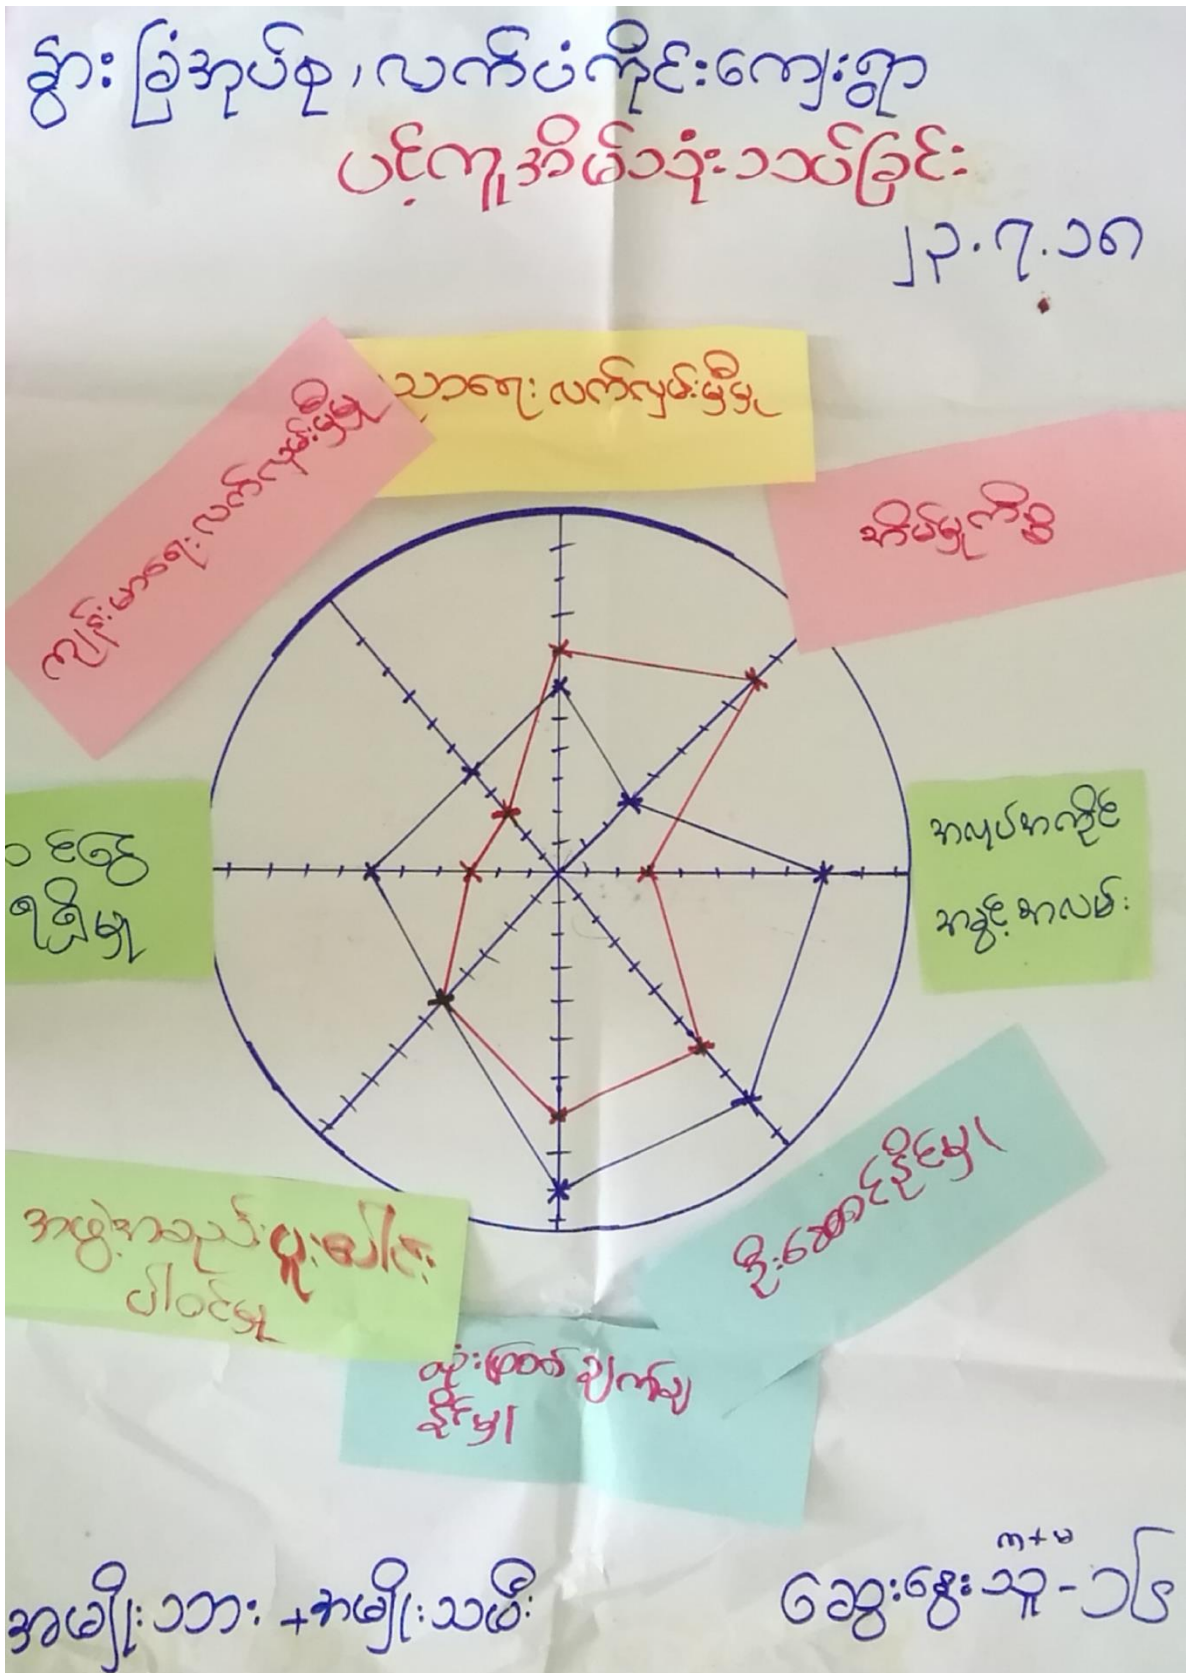 နွားခြံအုပ်စု၊ လက်ပံကိုင်းကျေးရွာ
ပင့်ကူအိမ်သုံးသပ်ခြင်း
၂၃.၇.၁၈
ကျန်းမာရေး လက်လှမ်းမှီမှု
ညာရေး လက်လှမ်းမှီမှု
အိမ်မှုကိစ္စ
အလုပ်အကိုင်
အခွင့်အလမ်း
ဝင်ငွေ
ရရှိမှု
ဦးဆောင်နိုင်မှု
အဖွဲ့အစည်းပူးပေါင်း
ပါဝင်မှု
ဆုံးဖြတ်ချက်ချ
နိုင်မှု
အမျိုးသား + အမျိုးသမီး
က + မ
ဆွေးနွေးသူ -